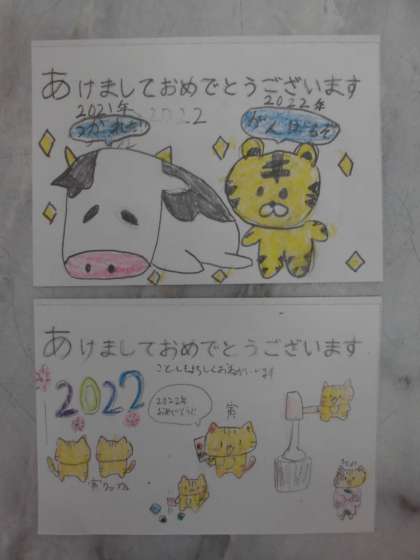 あけましておめでとうございます
2021年
つかれた
2022
2022年
がんばるぞ
あけましておめでとうございます
ことしもよろしくおねがいします
2022
2022年
おめでとう!
寅